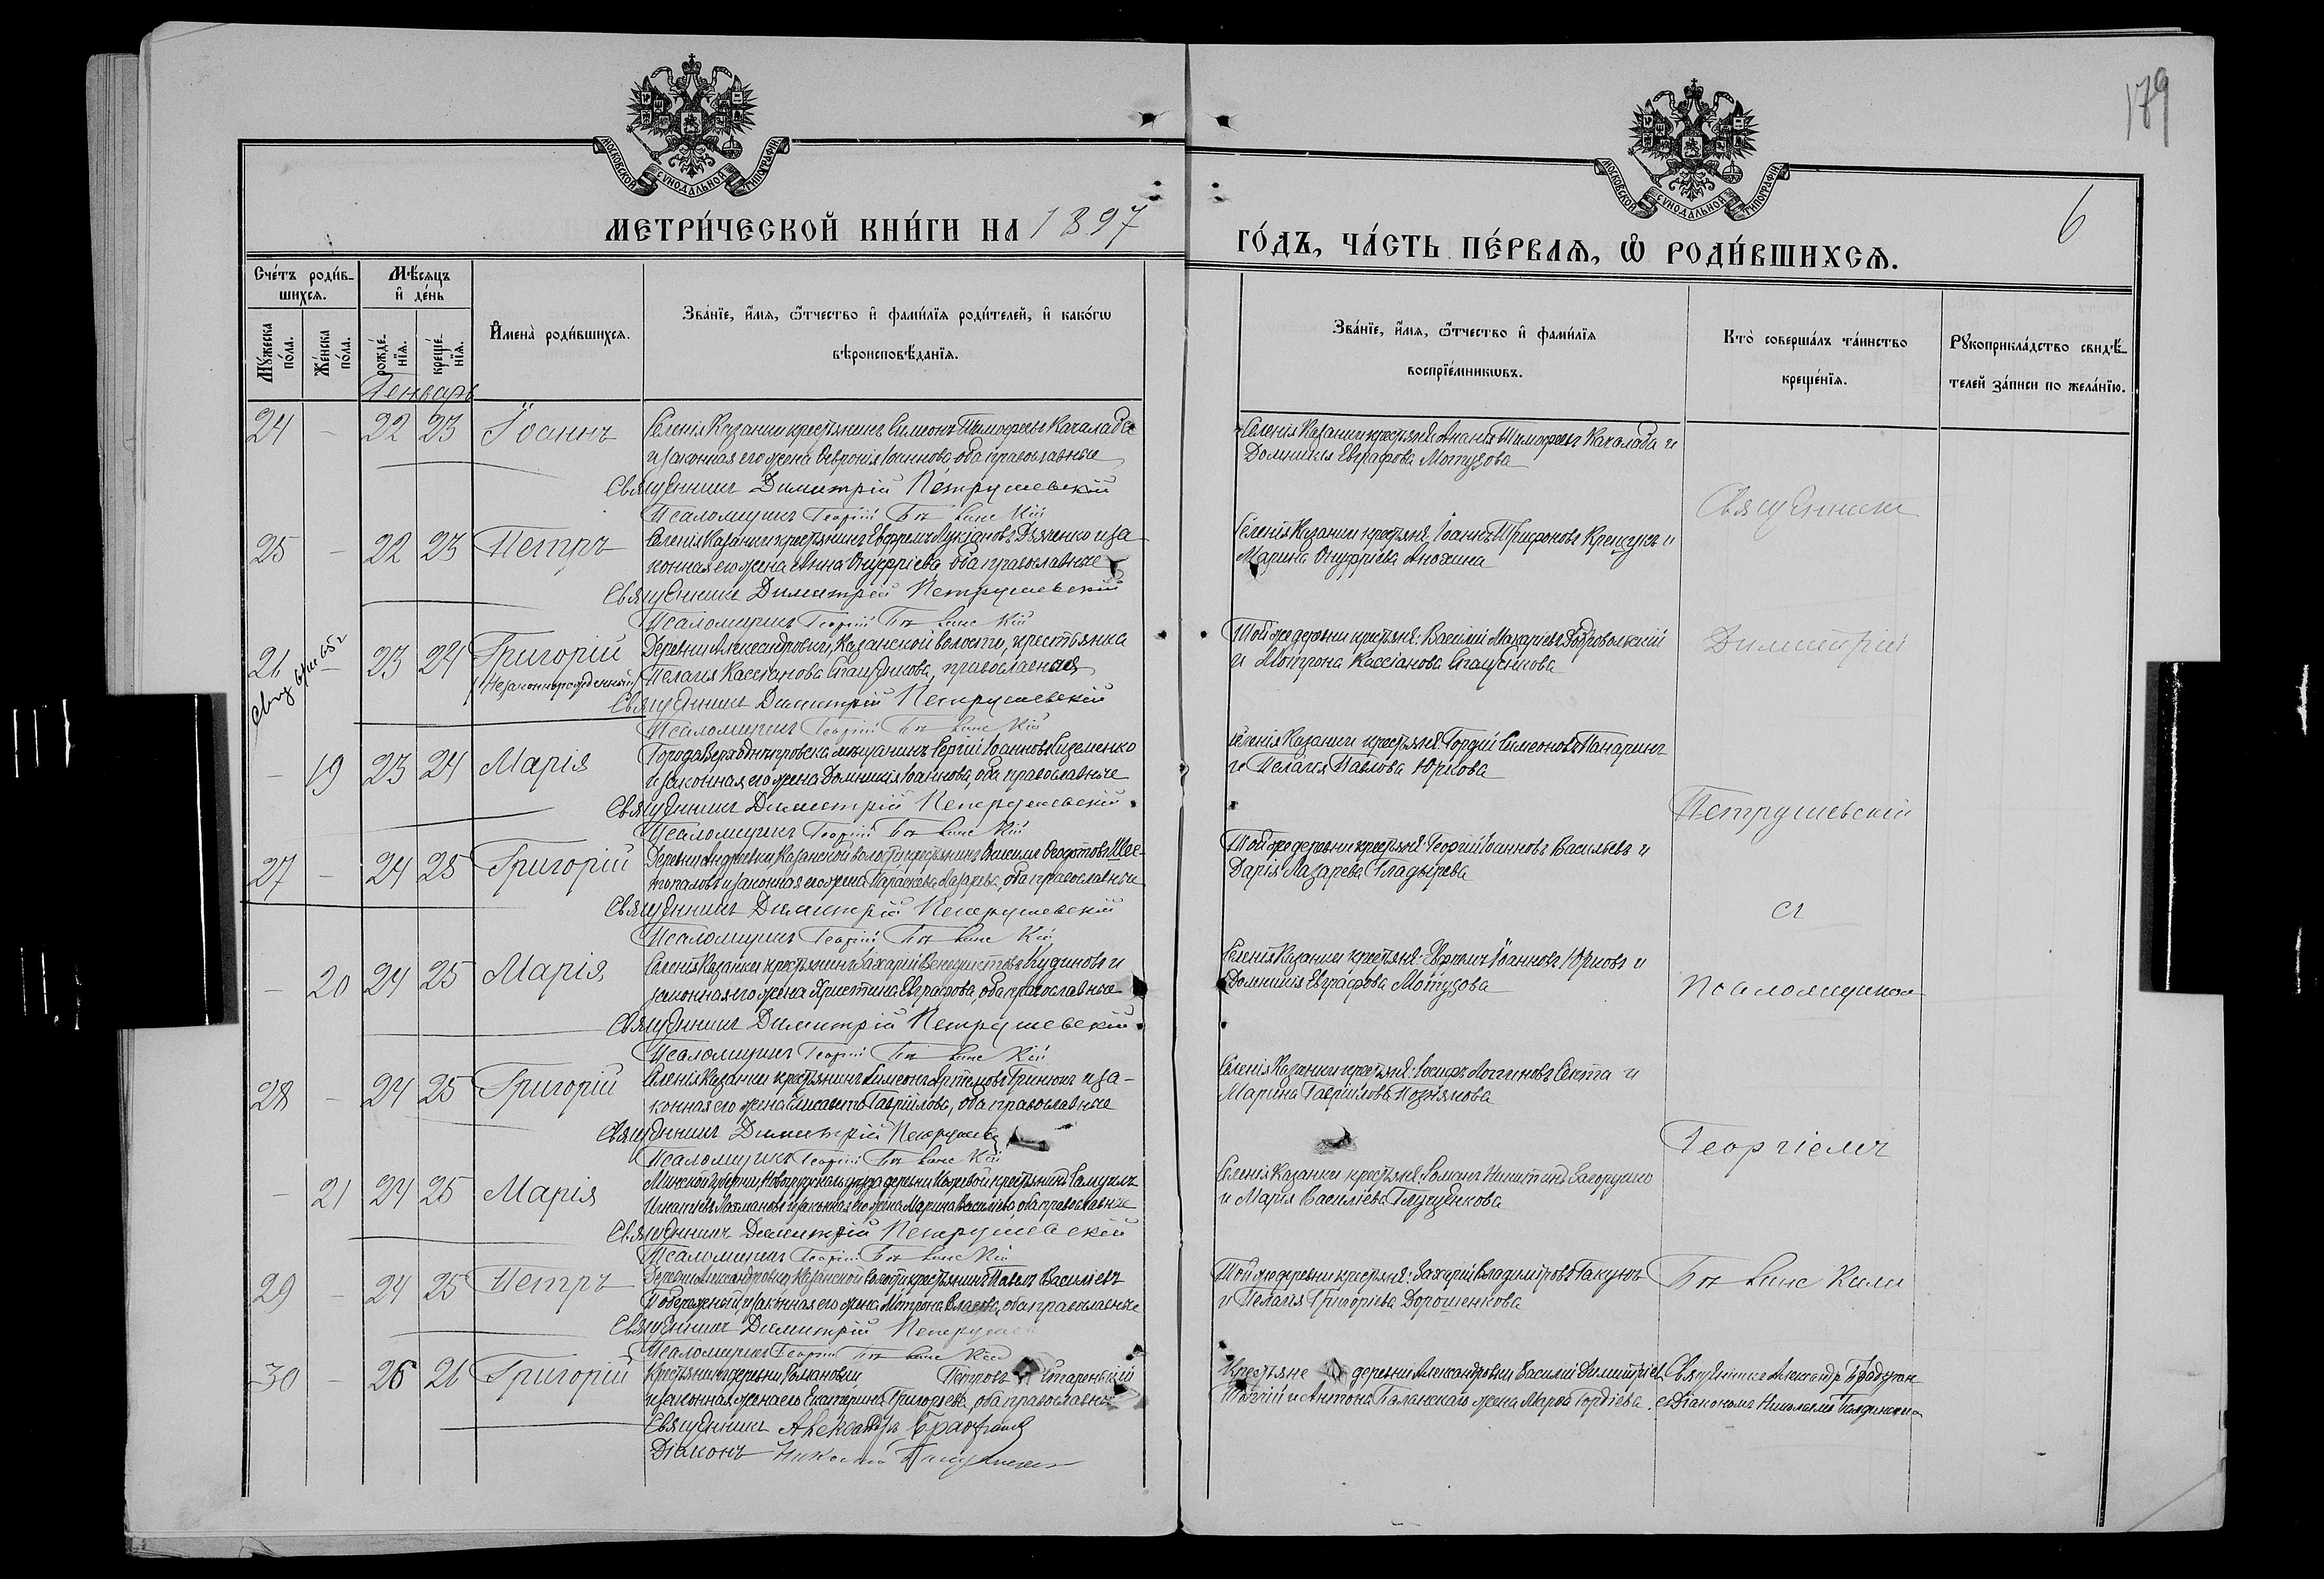 179
МОСКОВСКОЙ СѴНОДАЛЬНОЙ ТИПОГРАФІИ
МОСКОВСКОЙ СѴНОДАЛЬНОЙ ТИПОГРАФІИ
6
МЕТРИ́ЧЕСКОЙ КНИ́ГИ НА 1897
ГО́ДЪ, ЧА́СТЬ ПЕ́РВАЯ, Ѡ РОДИ́ВШИХСЯ.
Сче́тъ роди́в-
шихся.
Мѣ́сяцъ
и҆ де́нь
Мꙋ́жеска по́ла.
Же́нска по́ла.
рожде́-
нїя.
креще́-
нїя.
И҆мена̀ роди́вшихся.
Зва́нїе, и҆́мя, ѻ҆́тчество и҆ фами́лїя роди́телей, и҆ како́гѡ
вѣроисповѣ́данїя.
Зва́нїе, и҆́мя, ѻ҆́тчество и҆ фами́лїя
воспрїе́мникѡвъ.
Кто̀ соверша́лъ та́инство
креще́нїя.
Рꙋкоприкла́дство свидѣ́-
телей за́писи по жела́нїю.
Генварь
24 - 22 23 Іоаннъ Селенія Казанки крестьянинъ Симеонъ Тимофеевъ Качалаба
и законная его жена Феvронія Іоаннова оба православные
Священникъ Димитрій Петрушевскій
Псаломщикъ Георгій
Селенія Казанки крестьяне: Ананія Тимофеевъ Качалаба и
Домникія Евграфова Мотузова
25 - 22 23 Петръ Селенія Казанки крестьянинъ Ефремъ Лукіановъ Дяченко и за-
конная его жена Анна Онуфріева оба православные
Священникъ Димитрій Петрушевскій
Псаломщикъ Георгій
Селенія Казанки крестьяне: Іоаннъ Трифоновъ Кренцукъ и
Марина Онуфріева Анохина
26 - 23 24 Григорій Деревни Александровки, Казанской волости, крестьянка
(Незаконнорожденный) Пелагія Кассіанова Стаценкова, православная
Священникъ Димитрій Петрушевскій
Псаломщикъ Георгій
Той же деревни крестьяне: Василій Макаріевъ Добровольскій
и Мотрона Кассіанова Стаценкова
- 19 23 24 Марія Города Верходнѣпровска мѣщанинъ Сергій Іоанновъ Сизменко
и законная его жена Домникія Іоаннова, оба православные
Священникъ Димитрій Петрушевскій
Псаломщикъ Георгій
Селенія Казанки крестьяне: Гордій Симеоновъ Панаринъ
и Пелагія Павлова Юркова
27 - 24 25 Григорій Деревни Андреевки, Казанской волости крестьянинъ Василій Феодотовъ Шес-
топаловъ и законная его жена Параскева Лазарева, оба православные
Священникъ Димитрій Петрушевскій
Псаломщикъ Георгій
Той же деревни крестьяне: Георгій Іоанновъ Васильевъ и
Дарія Лазарева Гладырева
- 20 24 25 Марія Селенія Казанки крестьянинъ Захарій Венедиктовъ Кудиновъ и
законная его жена Христина Евграфова, оба православные
Священникъ Димитрій Петрушевскій
Псаломщикъ Георгій
Селенія Казанки крестьяне: Ефремъ Іоанновъ Юрковъ и
Домникія Евграфова Мотузова
28 - 24 25 Григорій Селенія Казанки крестьянинъ Симеонъ Артемовъ Гринюкъ и за-
конная его жена Елисавета Гавріилова, оба православные
Священникъ Димитрій
Псаломщикъ Георгій
Селенія Казанки крестьяне: Іосифъ Логгиновъ Секта и
Марина Гавріилова Познякова
- 21 24 25 Марія Минской губерніи, Новогрудскаго уѣзда деревни крестьянинъ Самуилъ
Игнатіевъ и законная его жена Марина Василіева, оба православные
Священникъ Димитрій Петрушевскій
Псаломщикъ Георгій
Селенія Казанки крестьяне: Романъ Никитинъ Загоруйко
и Марія Василіева Глущенкова
29 - 24 25 Петръ Деревни Александровки, Казанской волости крестьянинъ Павелъ Василіевъ
Побережный, и законная его жена Мотрона Власова, оба православные
Священникъ Димитрій
Псаломщикъ Георгій
Той же деревни крестьяне: Захарій Владиміровъ Гакунъ
и Пелагія Григоріева Дорошенкова
30 - 26 26 Григорій Крестьянинъ деревни Романовки Петровъ Старенькій
и законная жена его Екатерина Григорьева, оба православные
Священникъ Александръ
Діаконъ Николай
Крестьяне деревни Александровки Василій Димитріевъ
и Антона Баланскаго жена Марѳа Гордіева.
Священникъ
Димитрій
Петрушевскій
съ
псаломщикомъ
Георгіемъ
Священникъ Александръ
съ діакономъ Николаемъ